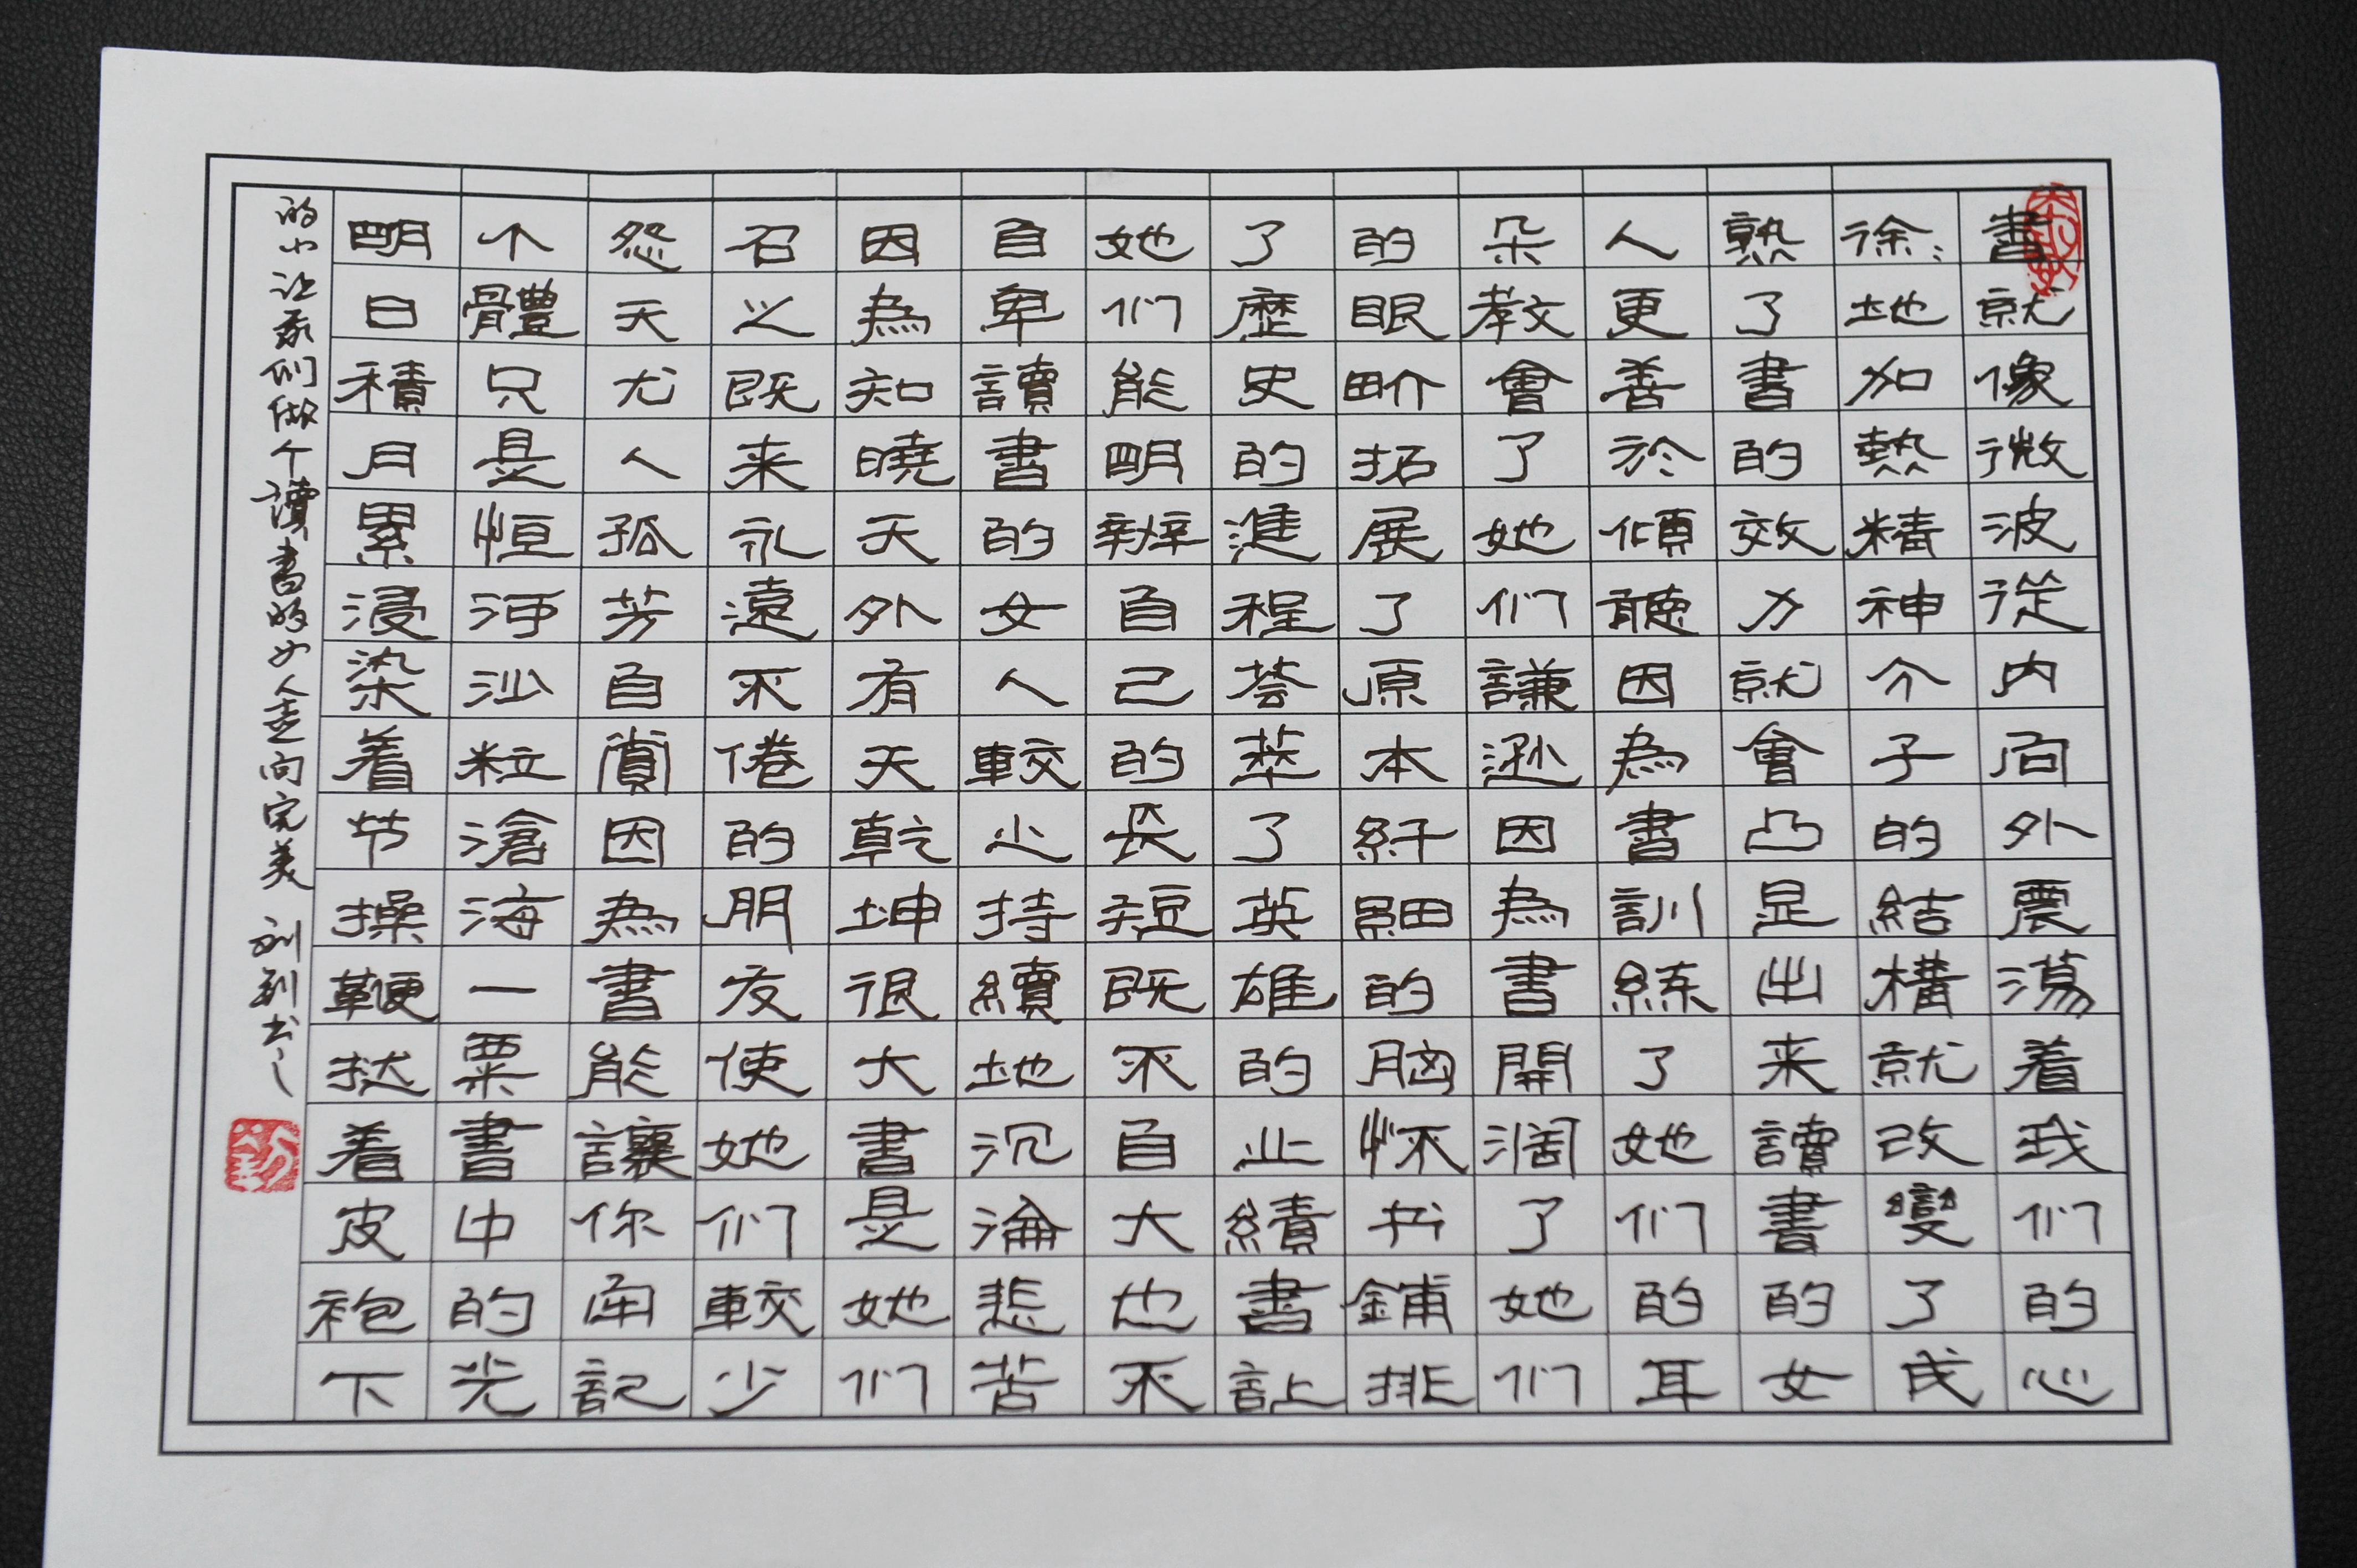 書就像微波從内向外震蕩着我们的心
徐:地加熱精神分子的結構就改變了成
熟了書的效力就會凸显出来讀書的女
人更善於傾聽因為書訓練了她们的耳
朵教會了她们謙遜因為書開濶了她们
的眼界拓展了原本纤細的脑怀书鋪排
了歷史的進程薈萃了英雄的业績書让
她们能明辦自己的长短既不自大也不
自卑讀書的女人較少持續地沉淪悲苦
因為知曉天外有天乾坤很大書是她们
召之既来永遠不倦的朋友使她们較少
怨天尤人孤芳自賞因為書能讓你牢記
个體只是恒河沙粒滄海一粟書中的光
明日積月累浸染着节操鞭挞着皮袍下
的小让我们做个讀書的女人走向完美